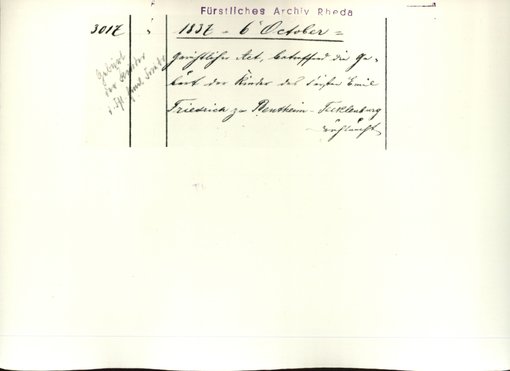 Fürstliches Archiv Rheda
3017
1837 - 6 October =
gerichtlicher Act, betreffend die Ge-
burt der Kinder des Fürsten Emil
Friedrich zu Bentheim-Tecklenburg
Geburt
der
Emil